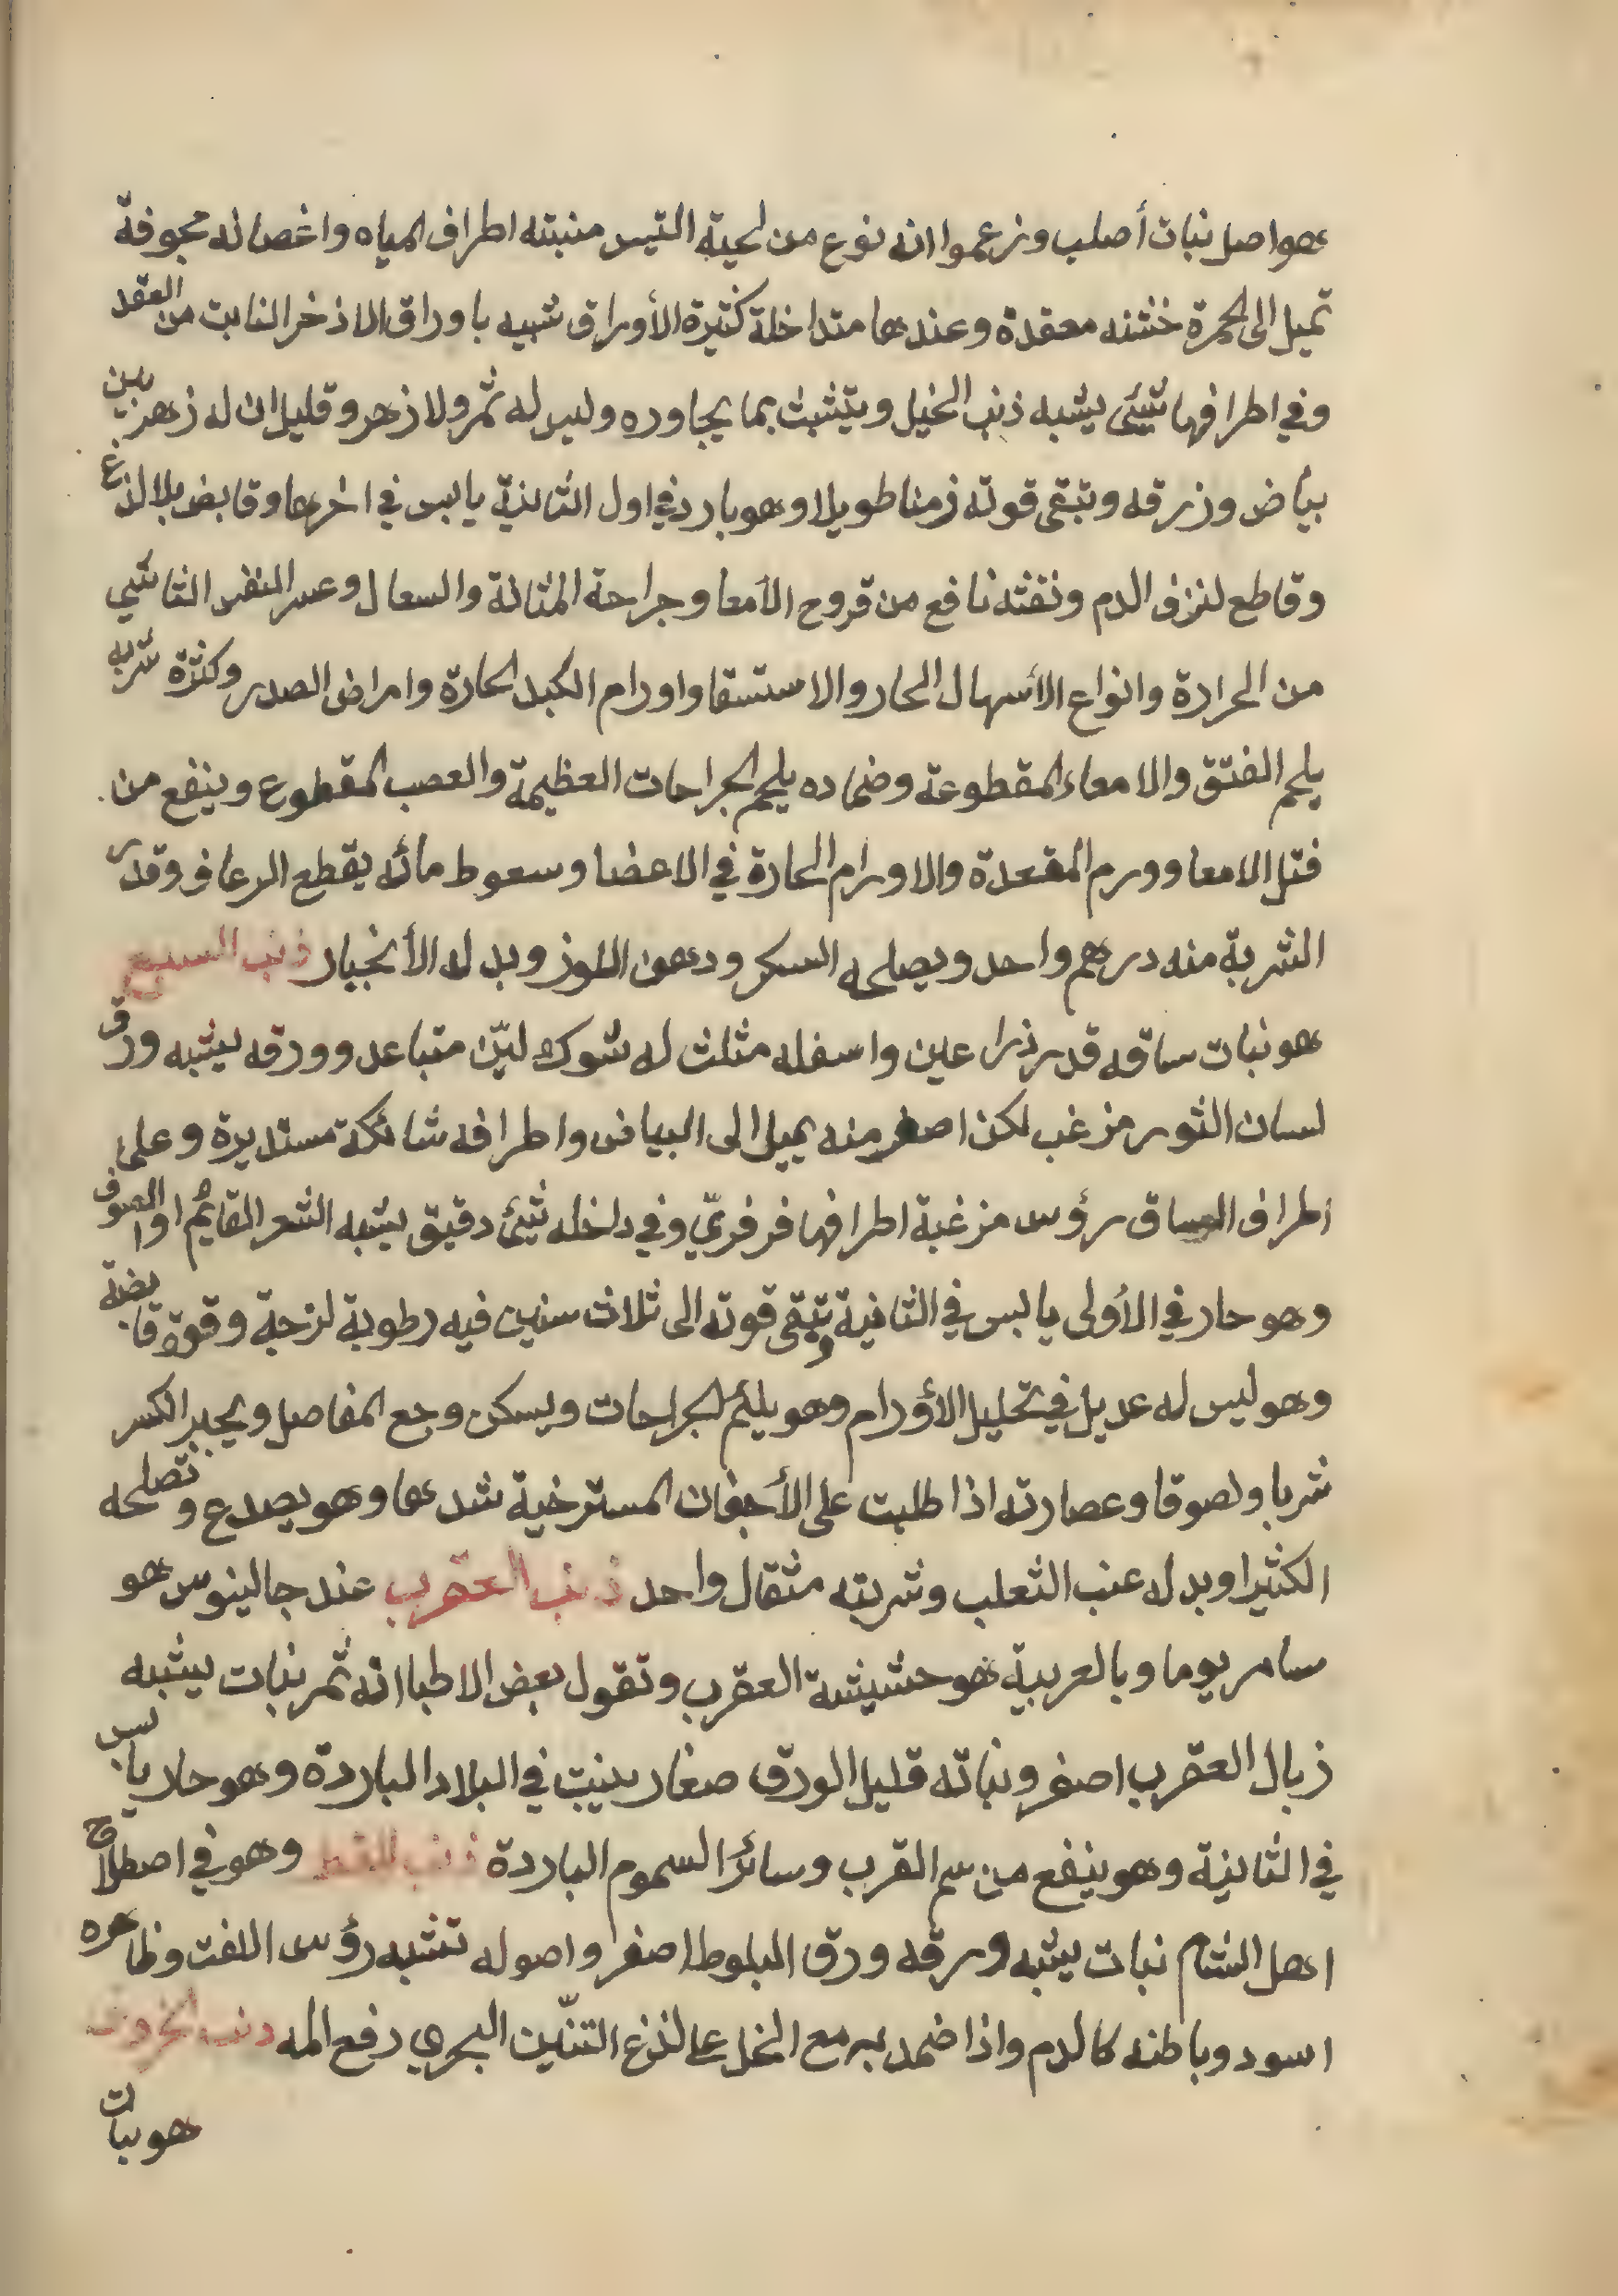 هو اصل نبات أصلب وزعموا انه نوع من لحية التيس منبته اطراف المياه واغصانه مجوفة
تميل الى الحمرة خشنه معقدة وعندها متداخلة كثيرة الأوراق شبيه باوراق الاذخر النابت من العقد
وفي اطرافها شيئ يشبه ذنب الخيل ويتشبث بما يجاوره وليس له ثمر ولا زهر وقليل ان له زهر بين
بياض وزرقه وتبقى قوته زمنا طويلا وهو بارد في اول الثانية يابس في اخرها وقابض بلا لذع
وقاطع لنزف الدم ونفثه نافع من قروح الأمعا وجراحة المثانة والسعال وعسر النفس الناشي
من الحرارة وانواع الأسهال الحار والاستسقا واورام الكبد الحارة وامراض الصدر وكثرة شربه
يلحم الفتق والامعاء المقطوعة وضماده يلحم الجراحات العظيمة والعصب المقطوع وينفع من
فتل الامعا وورم المقعدة والاورام الحارة في الاعضا وسعوط مائه يقطع الرعاف وقدر
الشربة منه درهم واحد ويصلحه السكر ودهن اللوز وبدله الأنجبار ذنب السبع
هو نبات ساقه قدر ذراعين واسفله مثلث له شوك ليّن متباعد وورقه يشبه ورق
لسان الثور مزغب لكن اصغر منه يميل الى البياض واطرافه شائكة مستديرة وعلى
اطراف الساق رؤس مزغبة اطرافها فرفريّ وفي داخله شيئ دقيق يشبه الشعر القائم او الصوف
وهو حار في الأولى يابس في الثانية وتبقى قوته الى ثلاث سنين فيه رطوبة لزجة وقوة قابضة
وهو ليس له عديل في تحليل الاؤرام وهو يلئم الجراحات ويسكن وجع المفاصل ويجبر الكسر
شربا ولصوقا وعصارته اذا طلبت على الأجفان المسترخية شدها وهو يصدع وتصلحه
الكثيرا وبدله عنب الثعلب وشربته مثقال واحد ذنب العقرب عند جالينوس هو
سامريوما وبالعربية هو حشيشة العقرب وتقول بعض الاطبا انه ثمر نبات يشبه
زبال العقرب اصفر ونباته قليل الورق صغار ينبت في البلاد الباردة وهو حار يابس
في الثانية وهو ينفع من سم القرب وسائر السموم الباردة ذنب وهو في اصطلاح
اهل الشام نبات يشبه ورقه ورق البلوط اصفر واصوله تشبه رؤس اللفت وظاهره
اسود وباطنه كالدم واذا ضمد به مع الخل على لذغ التنّين البحري رفع المه ذنب الخروف
هو نبات